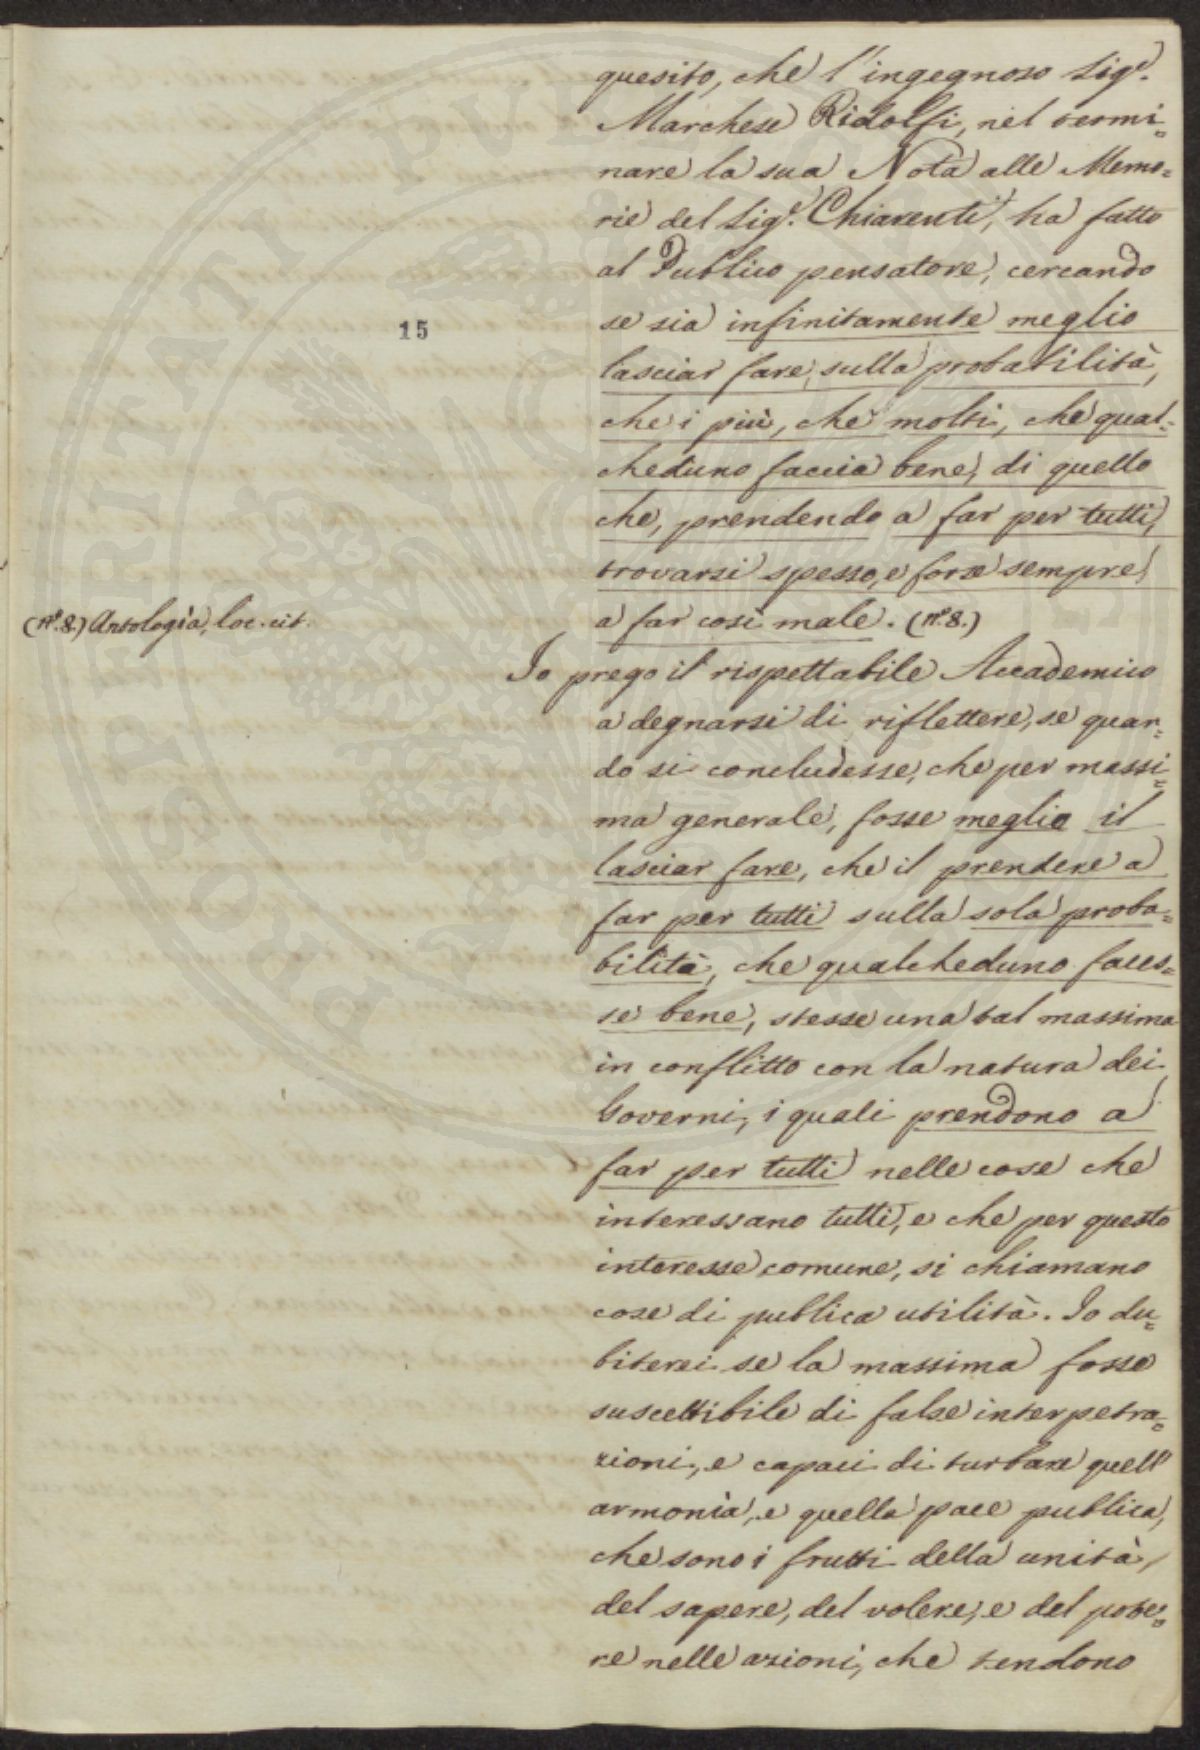 quesito, che l'ingegnoso Sig.e
Marchese Ridolfi, nel termi=
nare la sua Nota alle Memo=
rie del Sig.e Chiarenti, ha fatto
al Publico pensatore, cercando
15
se sia infinitamente meglio
lasciar fare, sulla probabilità,
che i più, che molti, che qual=
cheduno faccia bene, di quello
che, prendendo a far per tutti,
trovarsi spesso, e forse sempre,
a far così male. (n.º 8.)
(n.º 8.) Antologia, loc. cit.
Io prego il rispettabile Accademico
a degnarsi di riflettere, se quan=
do si concludesse, che per massi=
ma generale, fosse meglio il
lasciar fare, che il prendere a
far per tutti sulla sola proba=
bilità, che qualcheduno faces=
se bene, stesse una tal massima
in conflitto con la natura dei
Governi, i quali prendono a
far per tutti nelle cose che
interessano tutti, e che per questo
interesse comune, si chiamano
cose di publica utilità. Io du=
biterei se la massima fosse
suscettibile di false interpetra=
zioni, e capaci di turbare quell'
armonia, e quella pace publica,
che sono i frutti della unità,
del sapere, del volere, e del pote=
re nelle azioni, che tendono
PROSPERITATI PVBLICAE